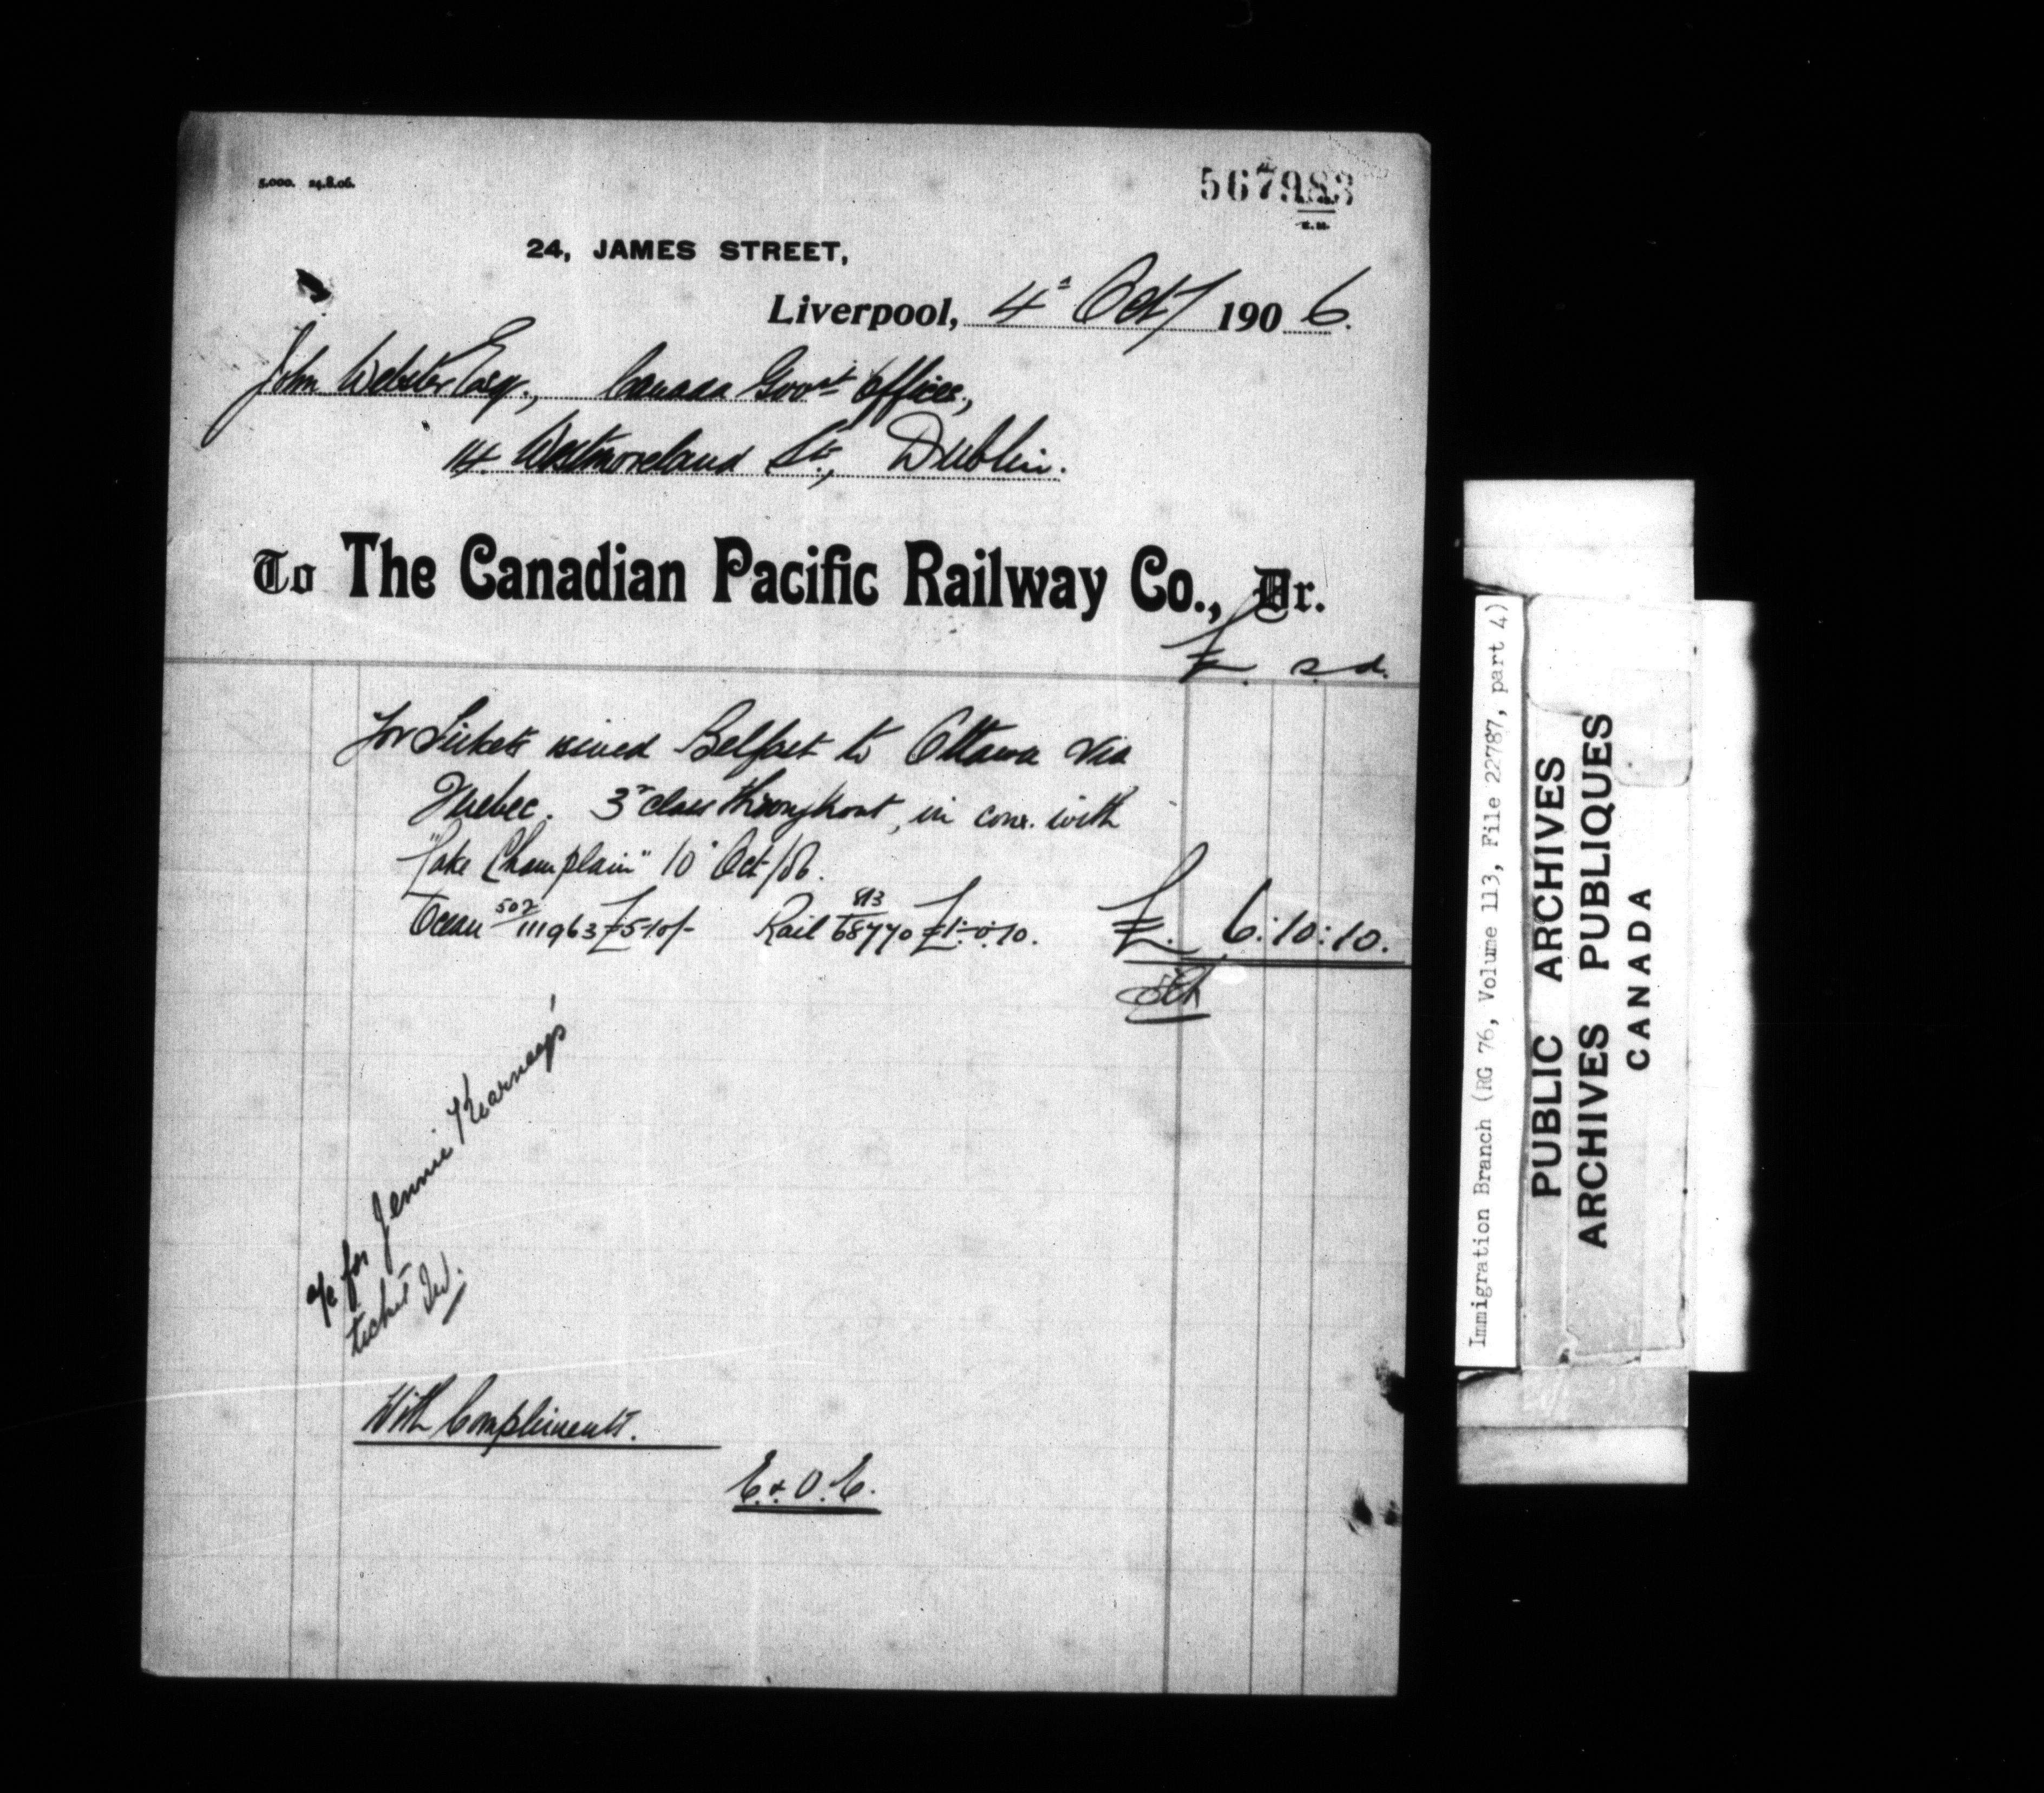 5,000. 24.8.06.
567983
24, JAMES STREET,
Liverpool, 4th Oct/ 1906.
John Webster Esq., Canada Govt Offices,
14 Westmoreland St., Dublin.
To The Canadian Pacific Railway Co., Dr.
£. s. d.
For Tickets issued Belfast to Ottawa via
Quebec. 3rd class throughout, in conn. with
"Lake Champlain" 10th Oct/06.
Ocean 502/111963 £5-10/- Rail 813/68770 £1:0:10. £. 6:10:10.
a/c for Jennie Kearney's
ticket
With Compliments.
E. & O. E.
Immigration Branch (RG 76, Volume 113, File 22787, part 4)
PUBLIC ARCHIVES
ARCHIVES PUBLIQUES
CANADA